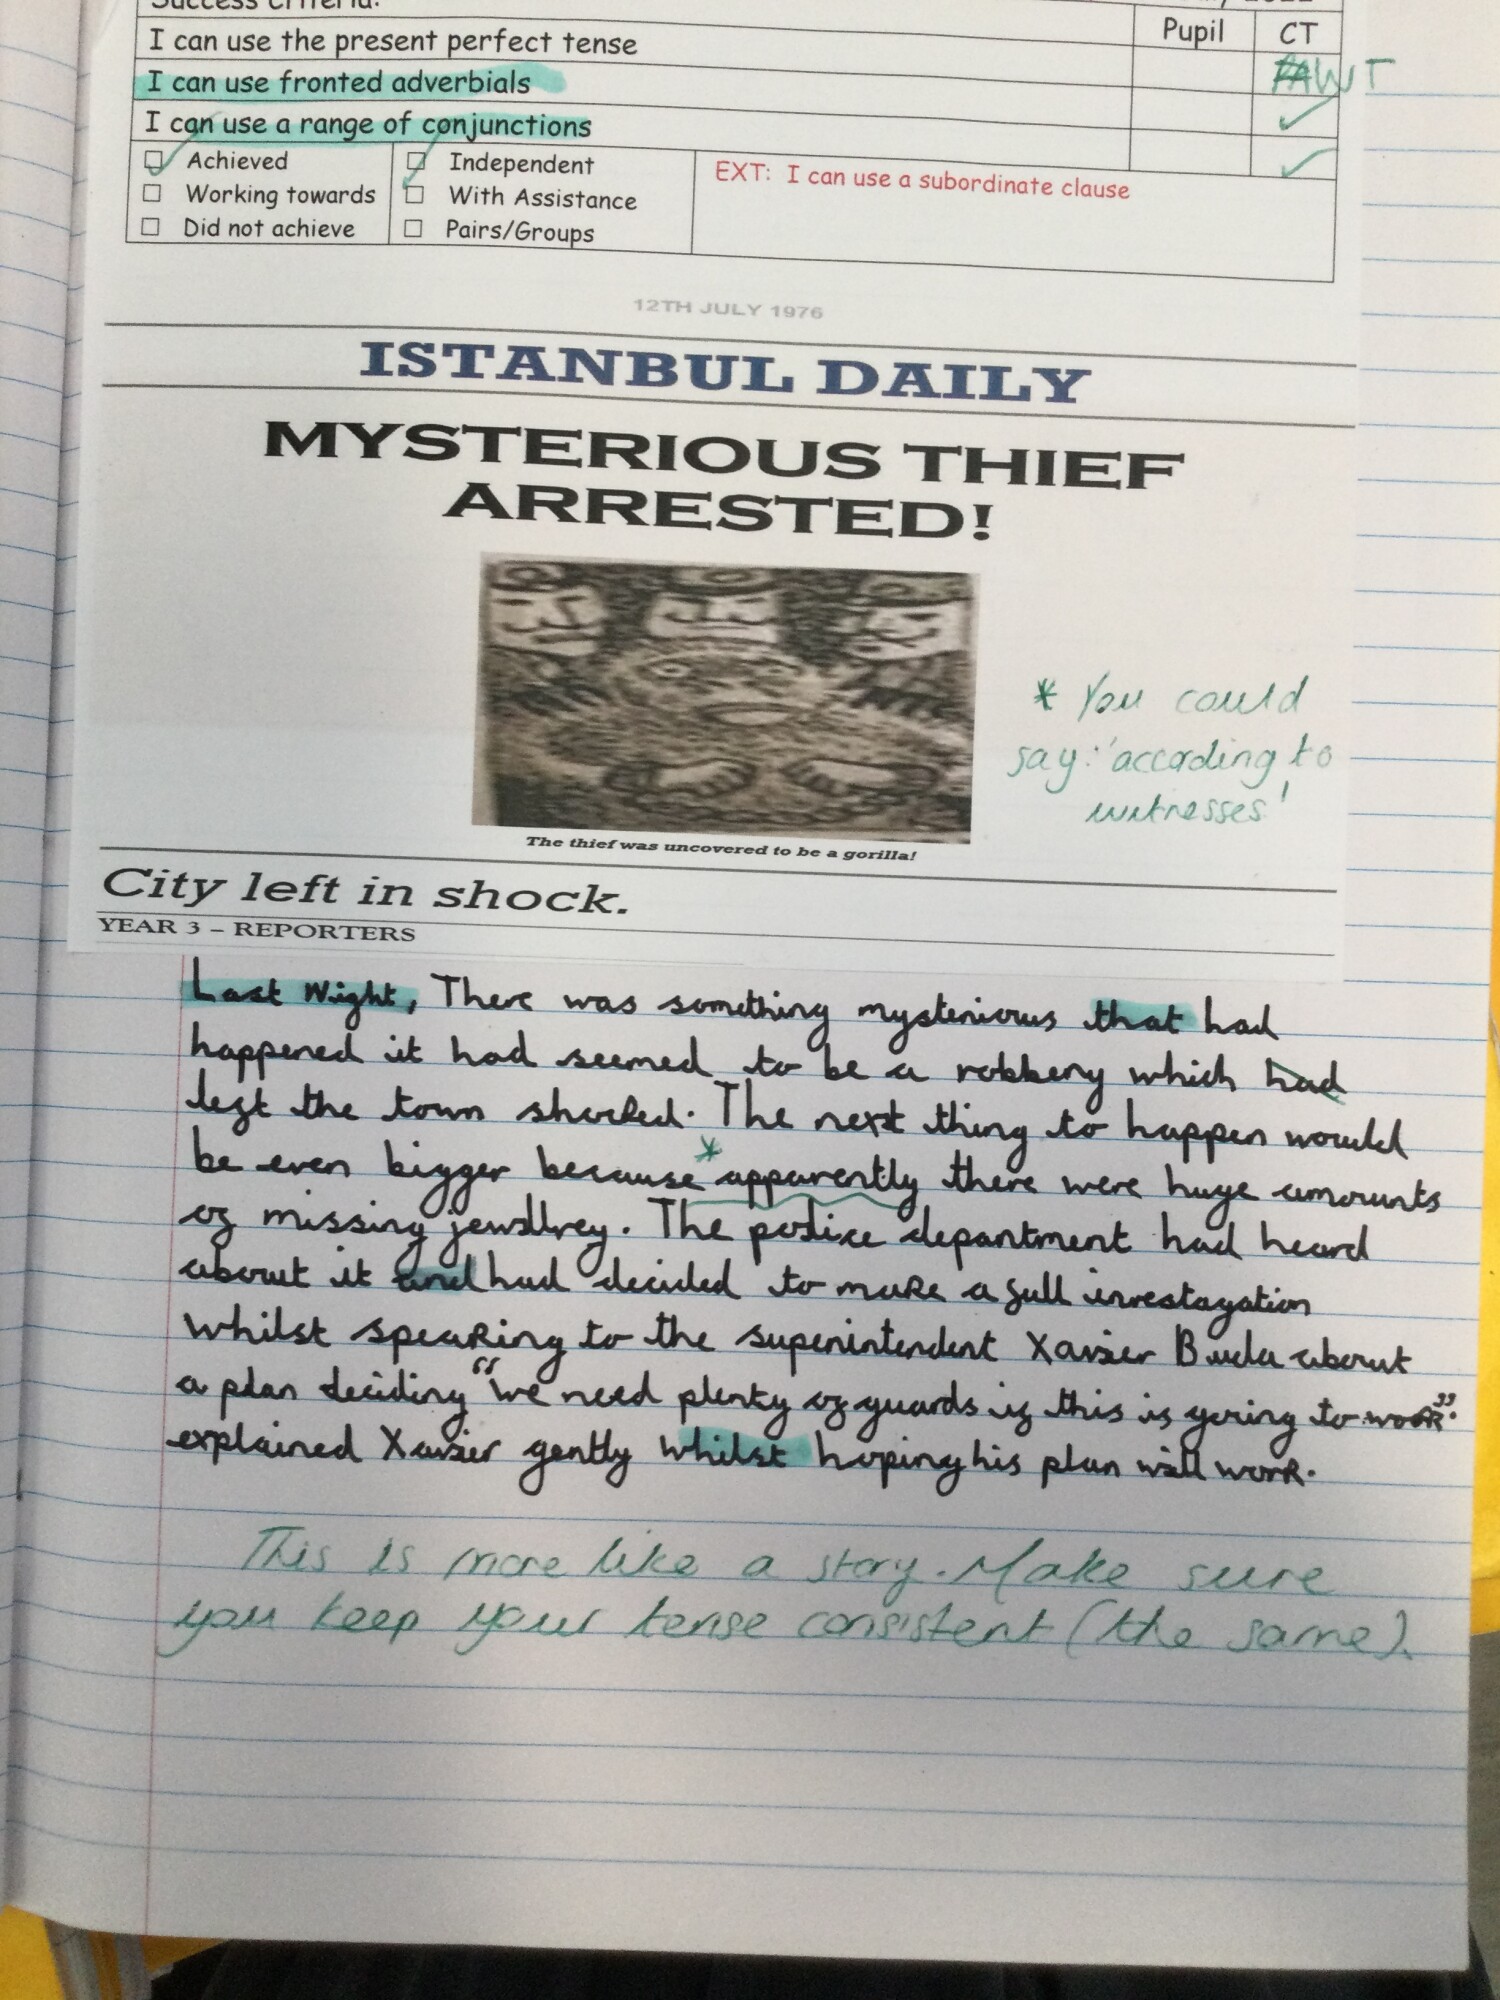 Success Criteria:
Pupil CT
I can use the present perfect tense
WT
I can use fronted adverbials ✓
I can use a range of conjunctions ✓
☐ Achieved ☐ Independent EXT: I can use a subordinate clause
☐ Working towards ☐ With Assistance
☐ Did not achieve ☐ Pairs/Groups
12TH JULY 1976
ISTANBUL DAILY
MYSTERIOUS THIEF
ARRESTED!
* You could
say: 'according to
witnesses'
The thief was uncovered to be a gorilla!
City left in shock.
YEAR 3 – REPORTERS
Last Night, There was something mysterious that had
happened it had seemed to be a robbery which had
left the town shocked. The next thing to happen would
be even bigger because * apparently there were huge amounts
of missing jewellrey. The police department had heard
about it and had decided to make a full investagation
whilst speaking to the superintendent Xavier Buda about
a plan deciding "we need plenty of guards if this is going to work".
explained Xavier gently whilst hoping his plan will work.
This is more like a story. Make sure
you keep your tense consistent (the same).